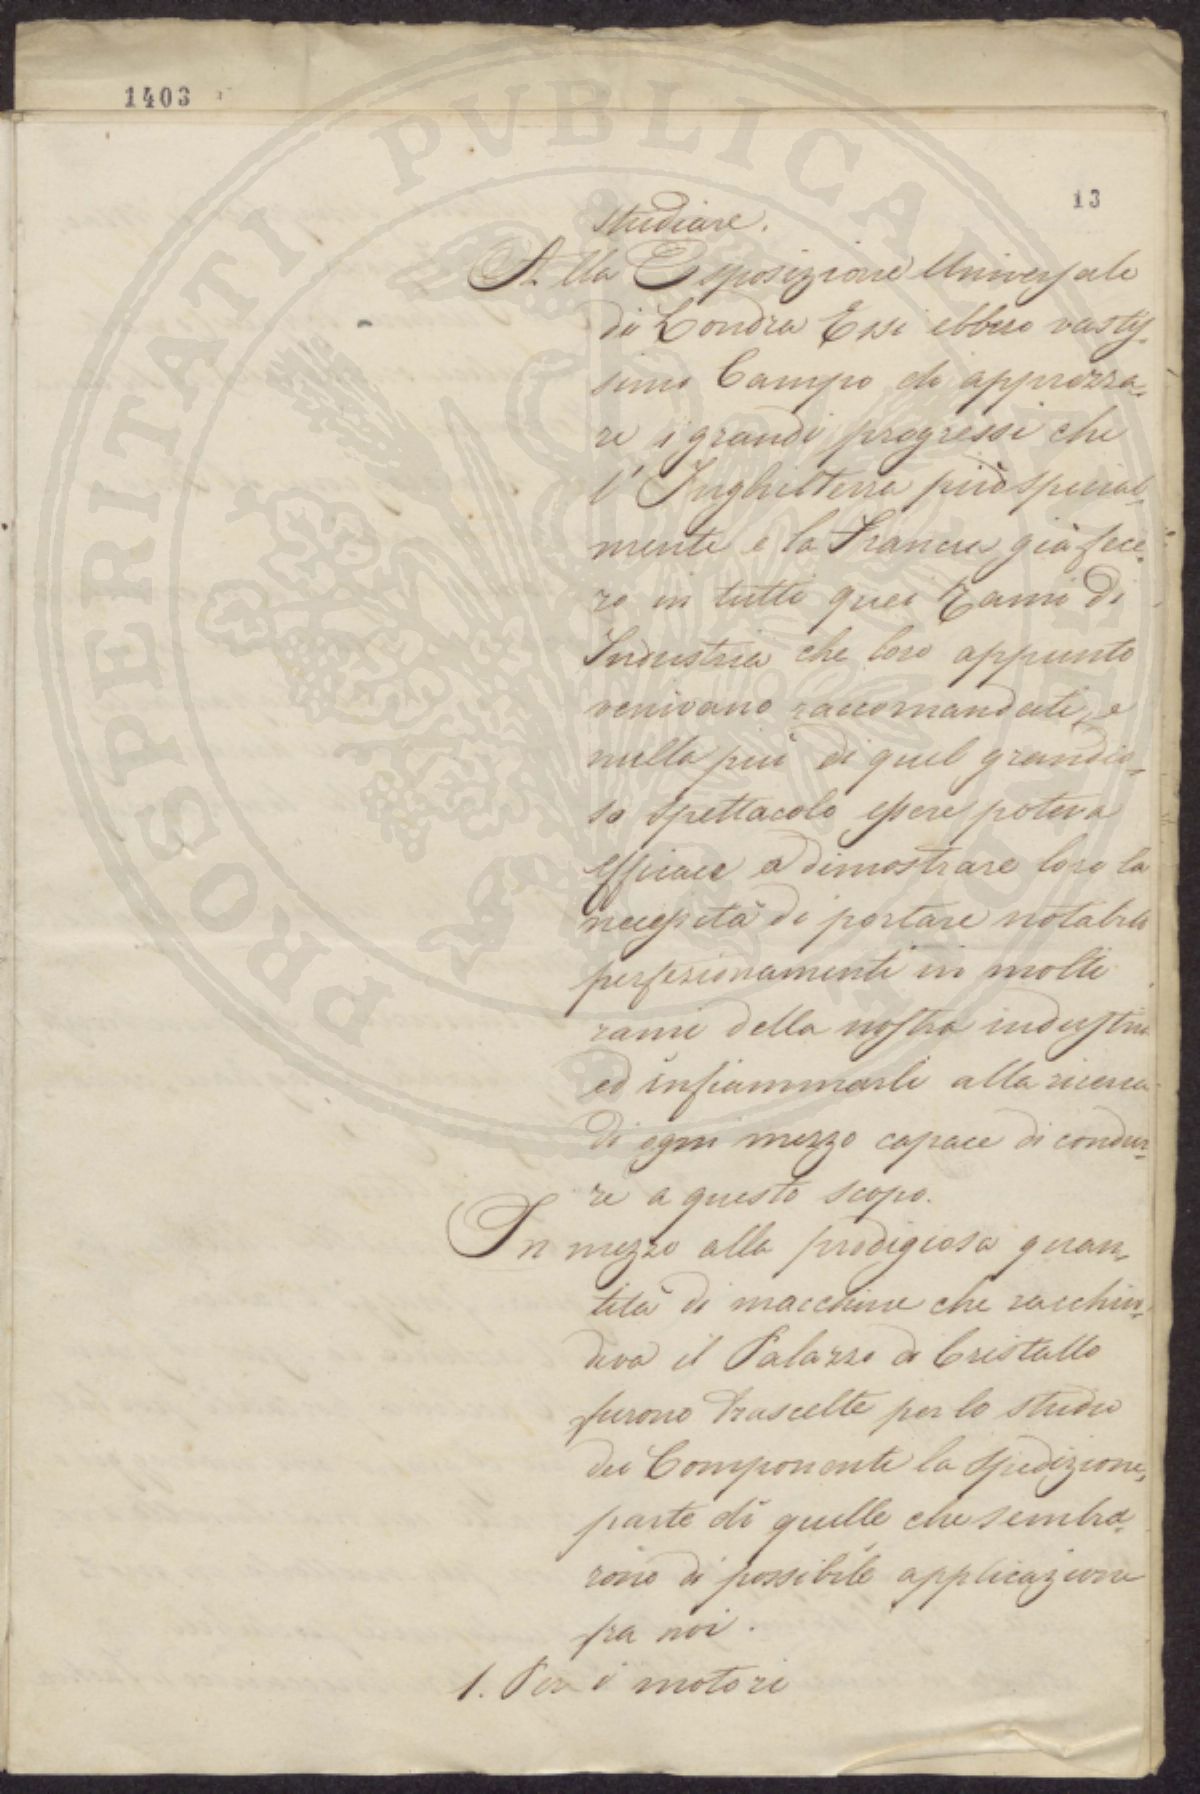 1403
13
studiare.
Alla Esposizione Universale
di Londra Essi ebbero vastis=
simo Campo di apprezza=
re i grandi progressi che
l'Inghilterra più special=
mente e la Francia già fece=
ro in tutti quei rami di
Industria che loro appunto
venivano raccomandati, e
nulla più di quel grandio=
so spettacolo essere poteva
efficace a dimostrare loro la
necessità di portare notabili
perfezionamenti in molti
rami della nostra industria
ed infiammarli alla ricerca
di ogni mezzo capace di condur=
re a questo scopo.
In mezzo alla prodigiosa quan=
tità di macchine che racchiu=
deva il Palazzo di Cristallo
furono trascelte per lo studio
dei Componenti la spedizione,
parte di quelle che sembra=
rono di possibile applicazione
fra noi.
1. Per i motori
PROSPERITATI PVBLICAE